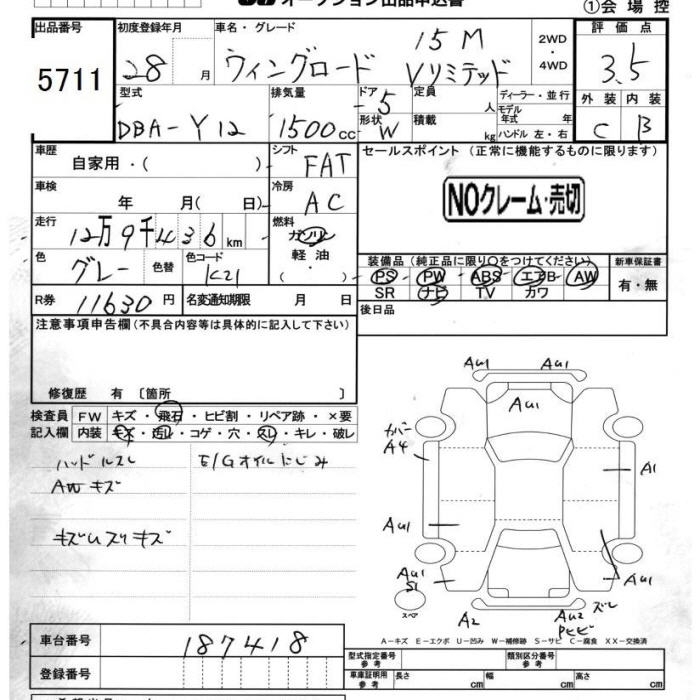 オークション出品申込書
①会場控
出品番号
5711
初度登録年月
28 月
車名・グレード
ウィングロード
15M
Vリミテッド
2WD
・
4WD
評価点
3.5
外装 内装
C B
型式
DBA-Y12
排気量
1500cc
ドア 5
形状 W
定員 人
積載 kg
ディーラー・並行
モデル
年式 年
ハンドル 左・右
車歴
自家用・( )
シフト
FAT
車検
年 月( 日)
冷房
AC
走行
12万9千436km
燃料
ガソリン
軽油
・( )
色
グレー
色替
色コード
K21
R券 11630円
名変通知期限 月 日
セールスポイント(正常に機能するものに限ります)
NOクレーム・売切
装備品(純正品に限り〇をつけてください)
PS・PW・ABS・エアB・AW
SR ナビ TV カワ
新車保証書
有・無
後日品
注意事項申告欄(不具合内容等は具体的に記入して下さい)
修復歴 有〔箇所 〕
検査員 FW キズ・飛石・ヒビ割・リペア跡・×要
記入欄 内装 キズ・汚レ・コゲ・穴・スレ・キレ・破レ
ハンドルスレ
E/Gオイルにじみ
AWキズ
キズUスリキズ
AU1 AU1
AU1
カバー
A4
A1
AU1
AU1
S1
AU1
スペア
A2
AU2 ズレ
Pヒビ
A-キズ E-エクボ U-凹み W-補修跡 S-サビ C-腐食 XX-交換済
車台番号 187418
登録番号
型式指定番号
参考
類別区分番号
参考
車庫証明用
参考
長さ cm 幅 cm 高さ cm